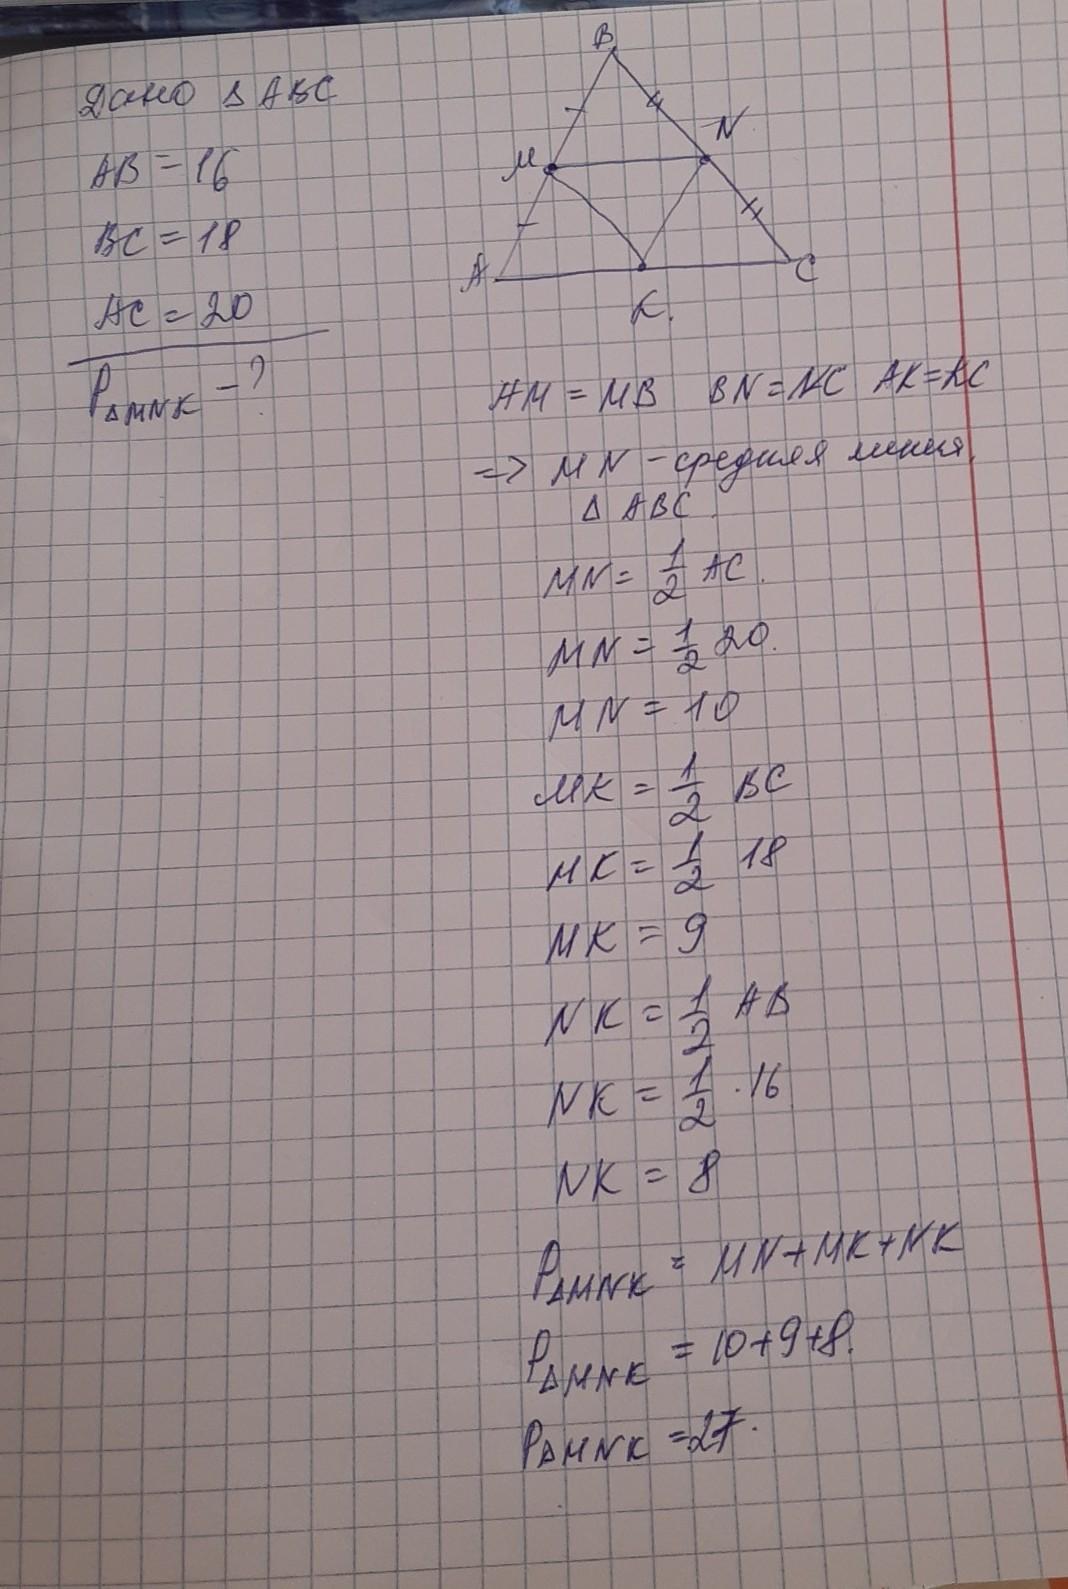 Дано Δ ABC
AB = 16
BC = 18
AC = 20
PΔMNK - ?
B
M
N
A
C
K.
AM = MB BN = NC AK = KC
=> MN - средняя линия
Δ ABC.
MN = 1/2 AC.
MN = 1/2 20.
MN = 10
MK = 1/2 BC
MK = 1/2 18
MK = 9
NK = 1/2 AB
NK = 1/2 · 16
NK = 8
PΔMNK = MN + MK + NK
PΔMNK = 10 + 9 + 8.
PΔMNK = 27.